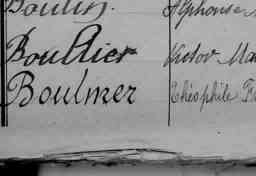 Boulin. Alphonse
Boullier Victor Ma
Boulmer Théophile